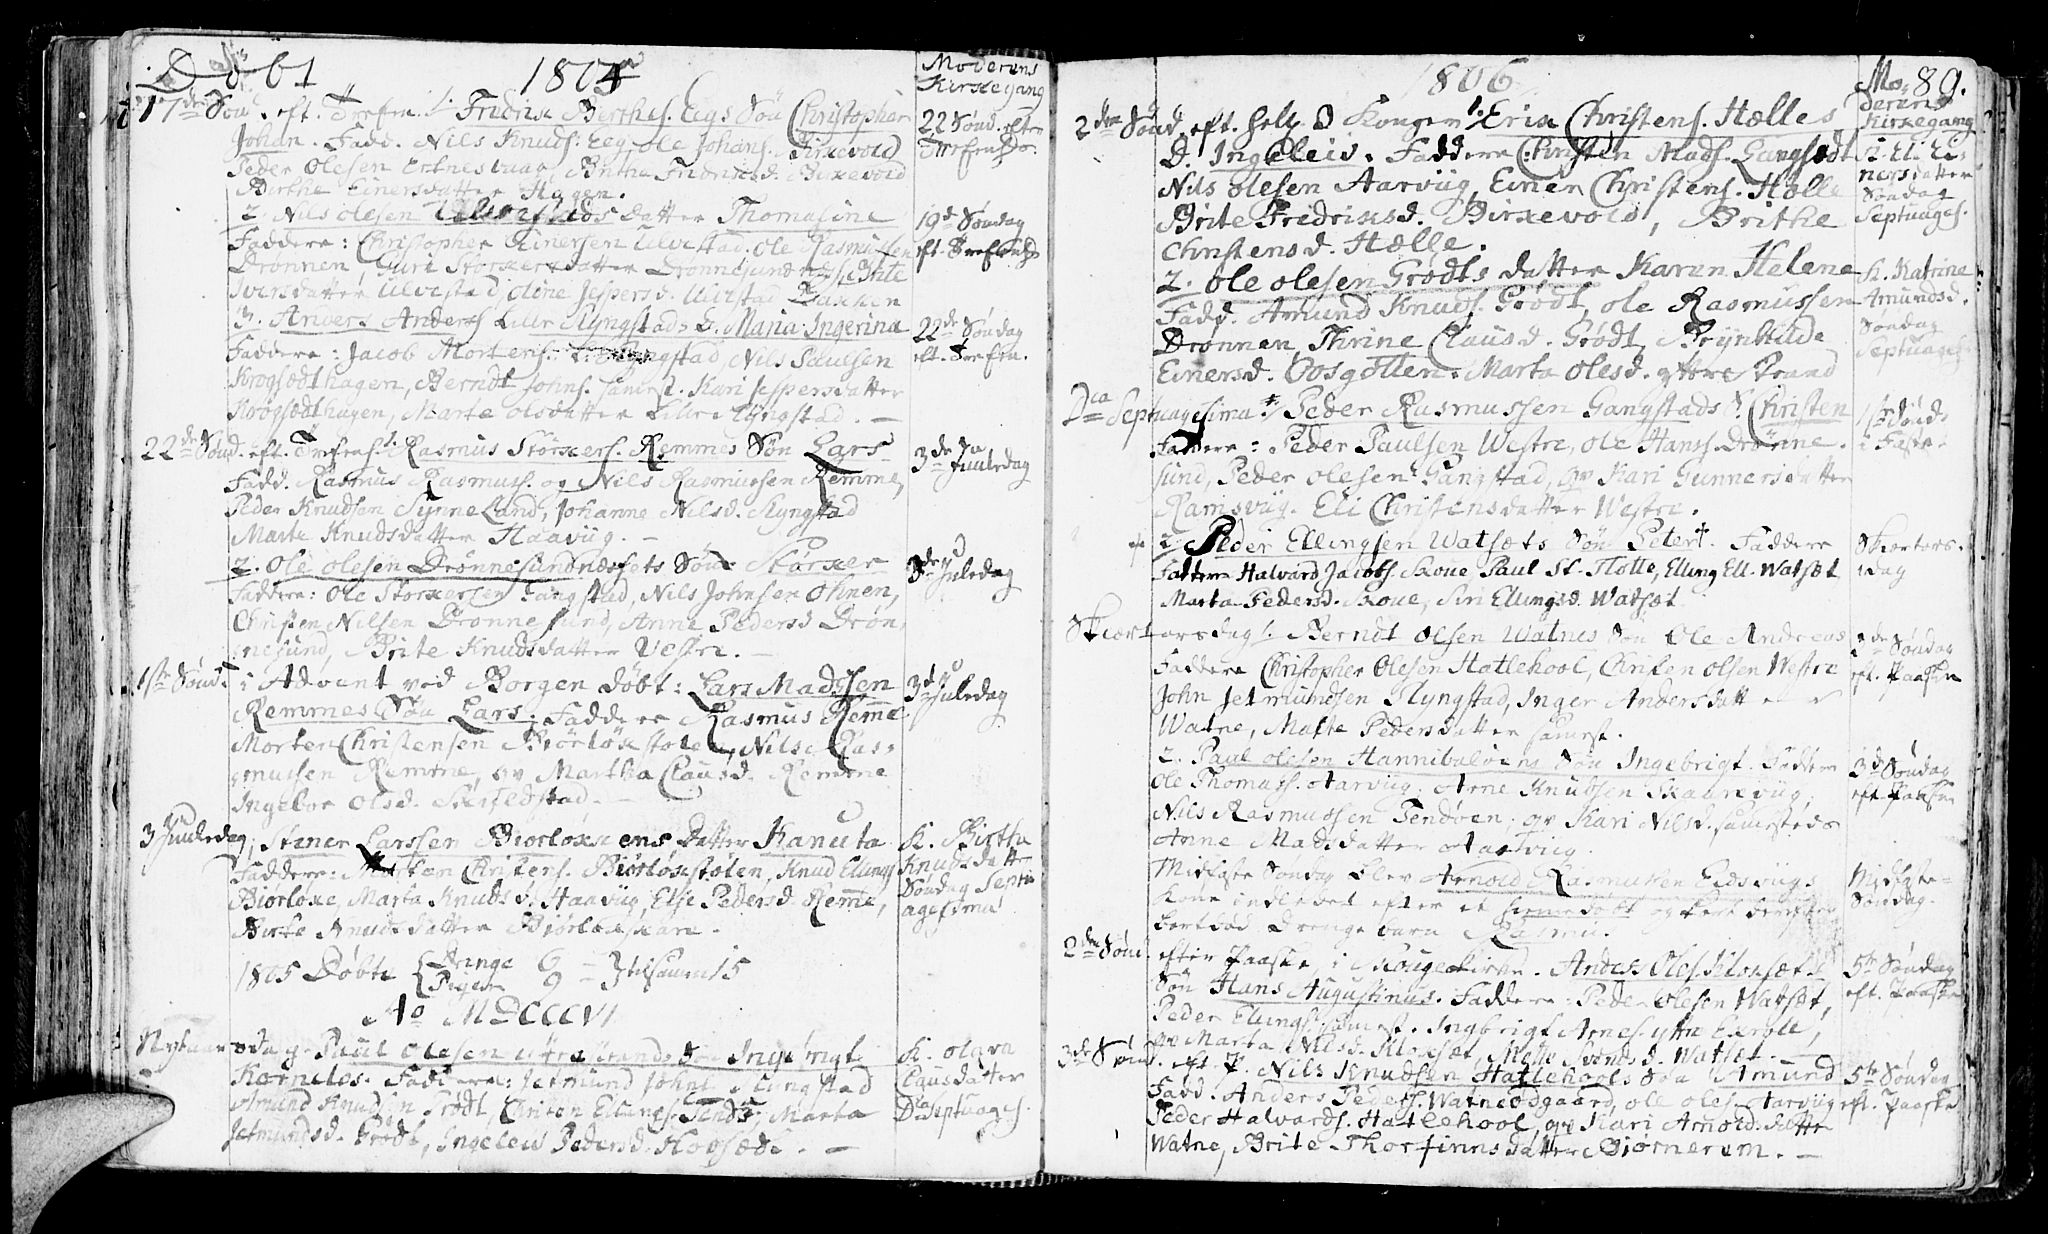 Døbt 1805
Moderens
Kirkegang
17de Sønd. eft. Trefen. 1. Fridrix Berthes. Eegs Søn Christopher
Johan. Fadd. Nils Knuds. Eeg, Ole Johans. Birkevold
Peder Olesen Birthe Fridrixsd. Birkevold
Birthe Einersdatter Hagen.
22 Sønd. efter
Trefensh.
2. Nils Olesen Ulvestads datter Thomasine
Faddere: Christopher Einersen Ulvestad, Ole Rasmussen
Drønnen, Guri Storkersdatter Drønnesundnes, Brite
Iversdatter Ulvestad, Oline Jespersd. Ulvestad Bakken
19de Søndag
eft. Trefensh.
3. Anders Anders. Lille Klyngstads D. Maria Ingerina
Faddere: Jacob Mortens. L: Klyngstad, Nils Paulsen
Krogsædthagen, Berndt Johns. samest. Kari Jespersdatter
Krogsædthagen, Marte Olsdatter Lille Klyngstad. —
22de Søndag
eft. Trefen.
22de Sønd. eft. Trefens. 1. Rasmus Størkers. Remmes Søn Lars
Fadd. Rasmus Rasmuss. og Nils Rasmussen Remme,
Peder Knudsen Synneland, Johanne Nilsd. Klyngstad
Marte Knudsdatter Haavüg. —
3de Juuledag
2. Ole Olesen Drønnesundnæssets Søn Størker
Faddere: Ole Storkersen Gangstad, Nils Johnsen Ohnen,
Christen Nilsen Drønnesund, Anne Pedersd. Drøn-
nesund, Brite Knudsdatter Vestre. —
3de Juledag
1ste Sønd. i Advent ved Borgen døbt: Lars Madssen
Remmes Søn Lars. Faddere Rasmus Remme
Morten Christensen Biörlöxstølen, Nils Ras-
mussen Remme, qv Martha Clausd. Remme
Ingebor Olsd. Skieldstad. —
3de Juledag
3 Juuledag, Stener Larssen Biørløxens Datter Kanuta
Faddere: Morten Christens. Biörlöxstølen, Knud Ellings.
Biørløxe, Marta Knudsd. Haavüg, Else Pedersd. Remme,
Birte Knudsdatter Biørløxskare.
K. Birthe
Knudsdatter
Søndag Septu
agesima
1805 Døbte { Drenge 6 — } tilsam 15
Piger 9 —
Ao MDCCCVI
Nytaarsdag Paul Olesen yttrestrands Søn Ingebrigt
Kornelius. Faddere: Jetmund Johns. Klyngstad
Amund Knudsen Grødt, Christen Ellings. Tendø, Marta
Jetmundsd. Grødt, Ingeleiv Pedersd. Hogsæde. —
K. Olava
Clausdatter
Dca Septuages.
1806
Mo- 89.
derens
Kirkegang
2den Sønd. eft. hell. 3 Konger 1. Erix Christens. Hælles
D. Ingeleiv. Faddere Christen Mads. Gangsædt
Nils Olesen Aarvüg, Einer Christens. Hælle
Brite Fridrixsd. Birkevold, Brithe
Christensd. Hælle.
nersdatter
Søndag
Septuages.
2. Ole Olesen Grødts datter Karen Helene
Fadd. Amund Knuds. Grødt, Ole Rasmussen
Drønnen Thrine Clausd. Grødt, Brynhilde
Einersd. Marta Olesd. yttre Strand
K. Katrine
Amundsd.
Søndag
Septuages.
Dca Septuagesima 1/ Peder Rasmussen Gangstads S. Christen
Faddere: Peder Paulsen Westre, Ole Hans. Drønne-
sund, Peder Olesen Gangstad, qv Kari Gunnersdatter
Ramsvüg. Eli Christensdatter Westre.
1ste Sønd.
i Faste
2 Peder Ellingsen Watsæts Søn Peter †. Faddere
Faddere Halvard Jacobs. Skoue, Paul St. Flotte, Elling Ell. Watsæt
Marta Pedersd. Skoue, Siri Ellingsd. Watsæt
Skiertors-
dag
Skiertorsdag 1. Berndt Olsen Watnes Søn Ole Andreas
Faddere Christopher Olesen Hatlehool, Christen Olsen Westre
John Jetmundsen Klyngstad, Inger Andersdatter
Watne, Malte Pedersdatter samest.
2de Søndag
eft. Paaske
2. Paul Olesen Hannibaløens Søn Ingebrigt. Faddere
Ole Thomass. Aarvüg, Arne Knudsen Skaarvüg,
Nils Rasmussen Tendøen, qv Kari Nilsd. samesteds
Anne Madsdatter Aarvüg.
3de Søndag
eft. Paaske
Midfaste Søndag blev Arnold Rasmussen Eidsvügs
Kone indledet efter et hiemedøbt og
bortdød Drengebarn Rasmus.
Midfaste-
Søndag.
2den Sønd. efter Paaske i Skouge Kirke. Anders Oles. Kloxsæts
Søn Hans Augustinus. Faddere: Peder Olesen Watsæt,
Peder Ellings. samest. Ingbrigt Arnes. yttre
qv Marta Nilsd. Kloxsæt, Mette Svendsd. Watsæt. —
5te Søndag
eft. Paaske
3de Sønd. eft. P. Nils Knudsen Hatlehools Søn Amund
Fadd. Anders Peders. Watneødgaard, Ole Oles. Aarvüg
Peder Halvards. Hatlehool, qv Kari Arnolddatter
Watne, Brite Thorfinnsdatter Biørnerem. —
5te Søndag
eft. Paaske